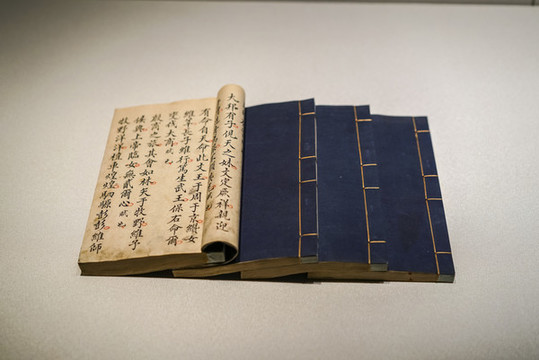 大邦有子俔天之妹文定厥祥親迎
有命自天命此文王于周于京纘女
維莘長子維行篤生武王保右命爾
燮伐大商賦也
殷商之旅其會如林矢于牧野維予
侯興上帝臨女無貳爾心賦也
牧野洋洋檀車煌煌駟騵彭彭維師